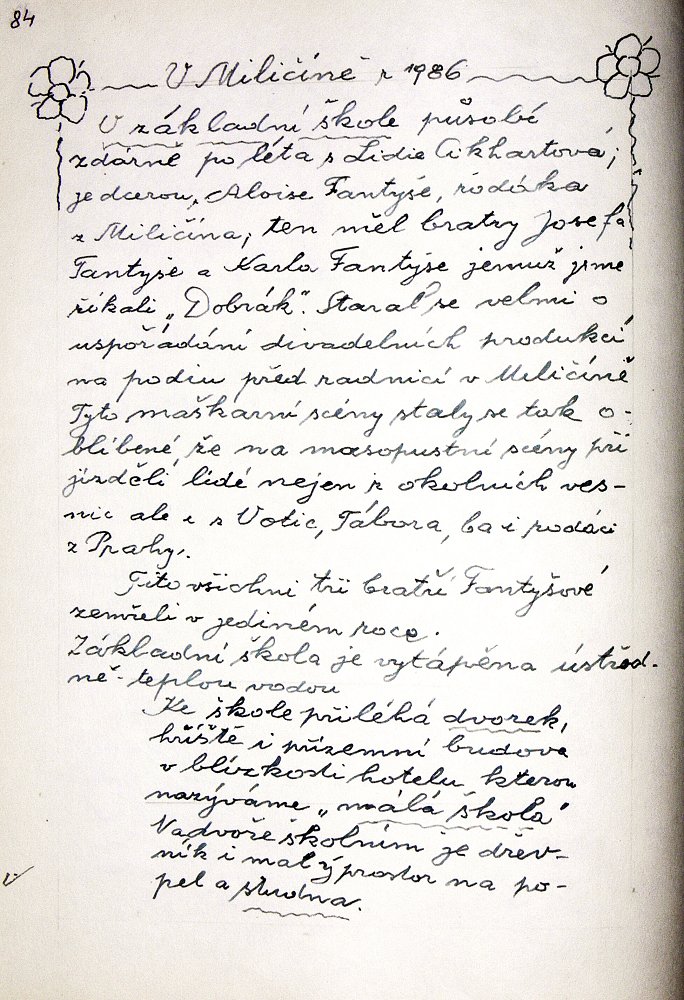 84
V Miličíně r 1986
V základní škole působí
zdárně po léta s Lidie Cikhartová;
je dcerou, Aloise Fantyše, rodáka
z Miličína; ten měl bratry Josefa
Fantyše a Karla Fantyše jemuž jsme
říkali „Dobrák". Staral se velmi o
uspořádání divadelních produkcí
na podiu před radnicí v Miličíně
Tyto maškarní scény staly se tak o-
blíbené, že na masopustní scény při
jížděli lidé nejen z okolních ves-
nic ale i z Votic, Tábora, ba i rodáci
z Prahy.
Tito všichni tři bratří Fantyšové
zemřeli v jediném roce.
Základní škola je vytápěna ústřed-
ně - teplou vodou
Ke škole přiléhá dvorek,
hřiště i přízemní budova
v blízkosti hotelu, kterou
nazýváme „malá škola"
Na dvoře školním je dřev-
ník i malý prostor na po-
pel a studna.